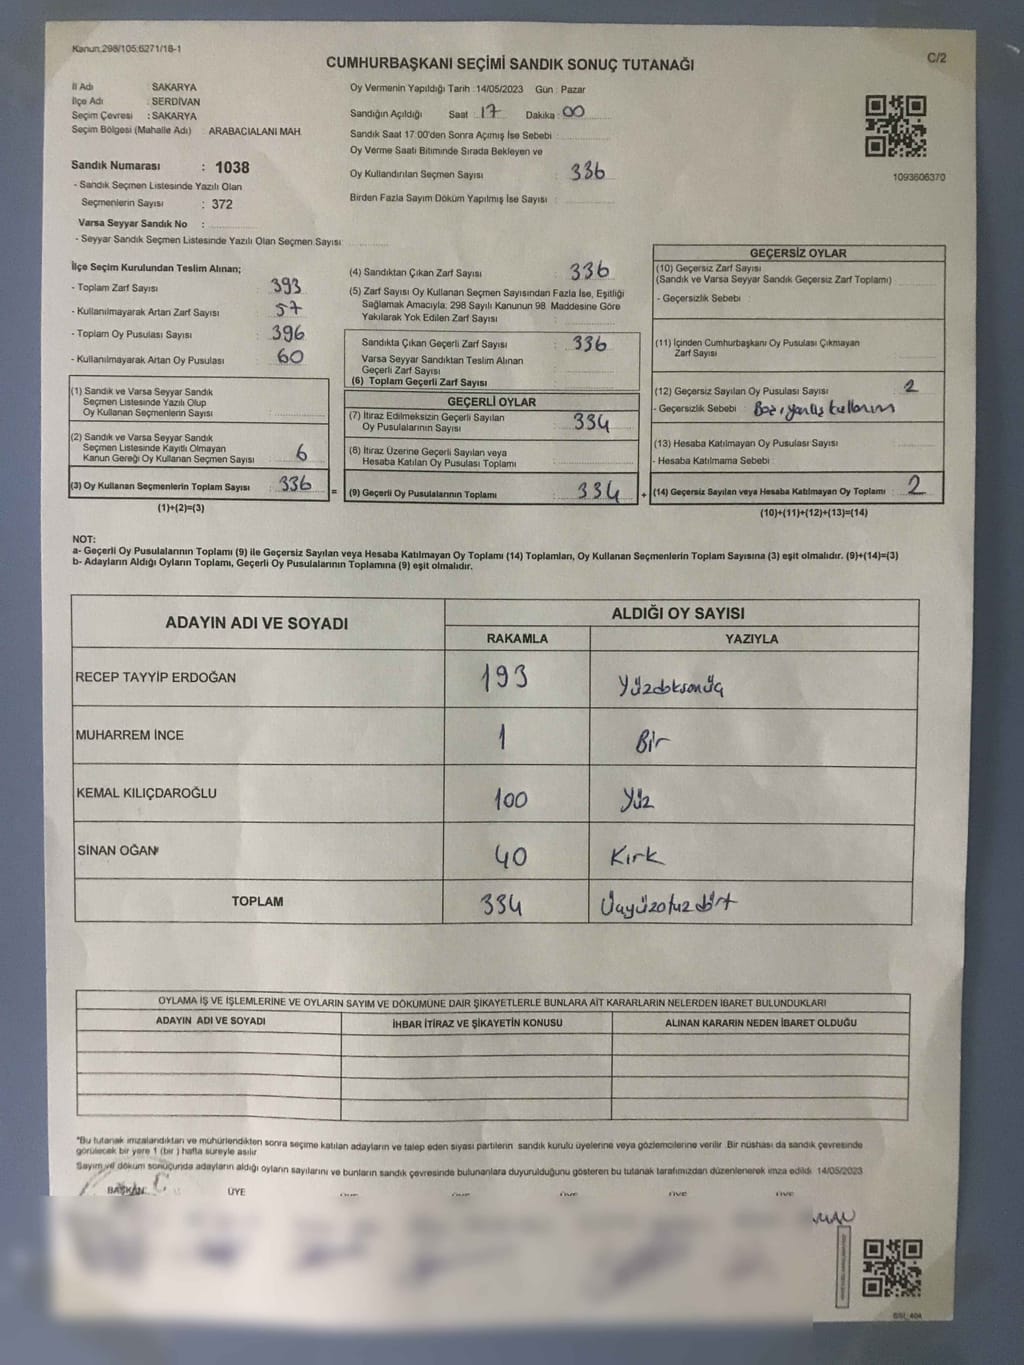 Kanun:298/105:6271/18-1
C/2
CUMHURBAŞKANI SEÇİMİ SANDIK SONUÇ TUTANAĞI
İl Adı : SAKARYA
İlçe Adı : SERDİVAN
Seçim Çevresi : SAKARYA
Seçim Bölgesi (Mahalle Adı) : ARABACIALANI MAH.
Oy Vermenin Yapıldığı Tarih : 14/05/2023 Gün : Pazar
Sandığın Açıldığı Saat : 17 Dakika : 00
Sandık Saat 17:00'den Sonra Açımış İse Sebebi :
Oy Verme Saati Bitiminde Sırada Bekleyen ve
Oy Kullandırılan Seçmen Sayısı : 336
Birden Fazla Sayım Döküm Yapılmış İse Sayısı :
1093606370
Sandık Numarası : 1038
- Sandık Seçmen Listesinde Yazılı Olan
Seçmenlerin Sayısı : 372
Varsa Seyyar Sandık No :
- Seyyar Sandık Seçmen Listesinde Yazılı Olan Seçmen Sayısı:
İlçe Seçim Kurulundan Teslim Alınan;
- Toplam Zarf Sayısı : 393
- Kullanılmayarak Artan Zarf Sayısı : 57
- Toplam Oy Pusulası Sayısı : 396
- Kullanılmayarak Artan Oy Pusulası : 60
(1) Sandık ve Varsa Seyyar Sandık
Seçmen Listesinde Yazılı Olup
Oy Kullanan Seçmenlerin Sayısı :
(2) Sandık ve Varsa Seyyar Sandık
Seçmen Listesinde Kayıtlı Olmayan
Kanun Gereği Oy Kullanan Seçmen Sayısı : 6
(3) Oy Kullanan Seçmenlerin Toplam Sayısı : 336
(1)+(2)=(3)
(4) Sandıktan Çıkan Zarf Sayısı : 336
(5) Zarf Sayısı Oy Kullanan Seçmen Sayısından Fazla İse, Eşitliği
Sağlamak Amacıyla; 298 Sayılı Kanunun 98. Maddesine Göre
Yakılarak Yok Edilen Zarf Sayısı :
Sandıkta Çıkan Geçerli Zarf Sayısı : 336
Varsa Seyyar Sandıktan Teslim Alınan
Geçerli Zarf Sayısı :
(6) Toplam Geçerli Zarf Sayısı :
GEÇERLİ OYLAR
(7) İtiraz Edilmeksizin Geçerli Sayılan
Oy Pusulalarının Sayısı : 334
(8) İtiraz Üzerine Geçerli Sayılan veya
Hesaba Katılan Oy Pusulası Toplamı :
= (9) Geçerli Oy Pusulalarının Toplamı : 334 +
GEÇERSİZ OYLAR
(10) Geçersiz Zarf Sayısı
(Sandık ve Varsa Seyyar Sandık Geçersiz Zarf Toplamı) :
- Geçersizlik Sebebi :
(11) İçinden Cumhurbaşkanı Oy Pusulası Çıkmayan
Zarf Sayısı :
(12) Geçersiz Sayılan Oy Pusulası Sayısı : 2
- Geçersizlik Sebebi :
(13) Hesaba Katılmayan Oy Pusulası Sayısı :
- Hesaba Katılmama Sebebi :
(14) Geçersiz Sayılan veya Hesaba Katılmayan Oy Toplamı : 2
(10)+(11)+(12)+(13)=(14)
NOT:
a- Geçerli Oy Pusulalarının Toplamı (9) ile Geçersiz Sayılan veya Hesaba Katılmayan Oy Toplamı (14) Toplamları, Oy Kullanan Seçmenlerin Toplam Sayısına (3) eşit olmalıdır. (9)+(14)=(3)
b- Adayların Aldığı Oyların Toplamı, Geçerli Oy Pusulalarının Toplamına (9) eşit olmalıdır.
ADAYIN ADI VE SOYADI
ALDIĞI OY SAYISI
RAKAMLA YAZIYLA
RECEP TAYYİP ERDOĞAN 193 Yüzdoksanüç
MUHARREM İNCE 1 Bir
KEMAL KILIÇDAROĞLU 100 Yüz
SİNAN OĞAN 40 Kırk
TOPLAM 334 Üçyüzotuzdört
OYLAMA İŞ VE İŞLEMLERİNE VE OYLARIN SAYIM VE DÖKÜMÜNE DAİR ŞİKAYETLERLE BUNLARA AİT KARARLARIN NELERDEN İBARET BULUNDUKLARI
ADAYIN ADI VE SOYADI İHBAR İTİRAZ VE ŞİKAYETİN KONUSU ALINAN KARARIN NEDEN İBARET OLDUĞU
*Bu tutanak imzalandıktan ve mühürlendikten sonra seçime katılan adayların ve talep eden siyasi partilerin sandık kurulu üyelerine veya gözlemcilerine verilir. Bir nüshası da sandık çevresinde
görülecek bir yere 1 (bir ) hafta süreyle asılır.
Sayım ve döküm sonucunda adayların aldığı oyların sayılarını ve bunların sandık çevresinde bulunanlara duyurulduğunu gösteren bu tutanak tarafımızdan düzenlenerek imza edildi. 14/05/2023
BAŞKAN ÜYE